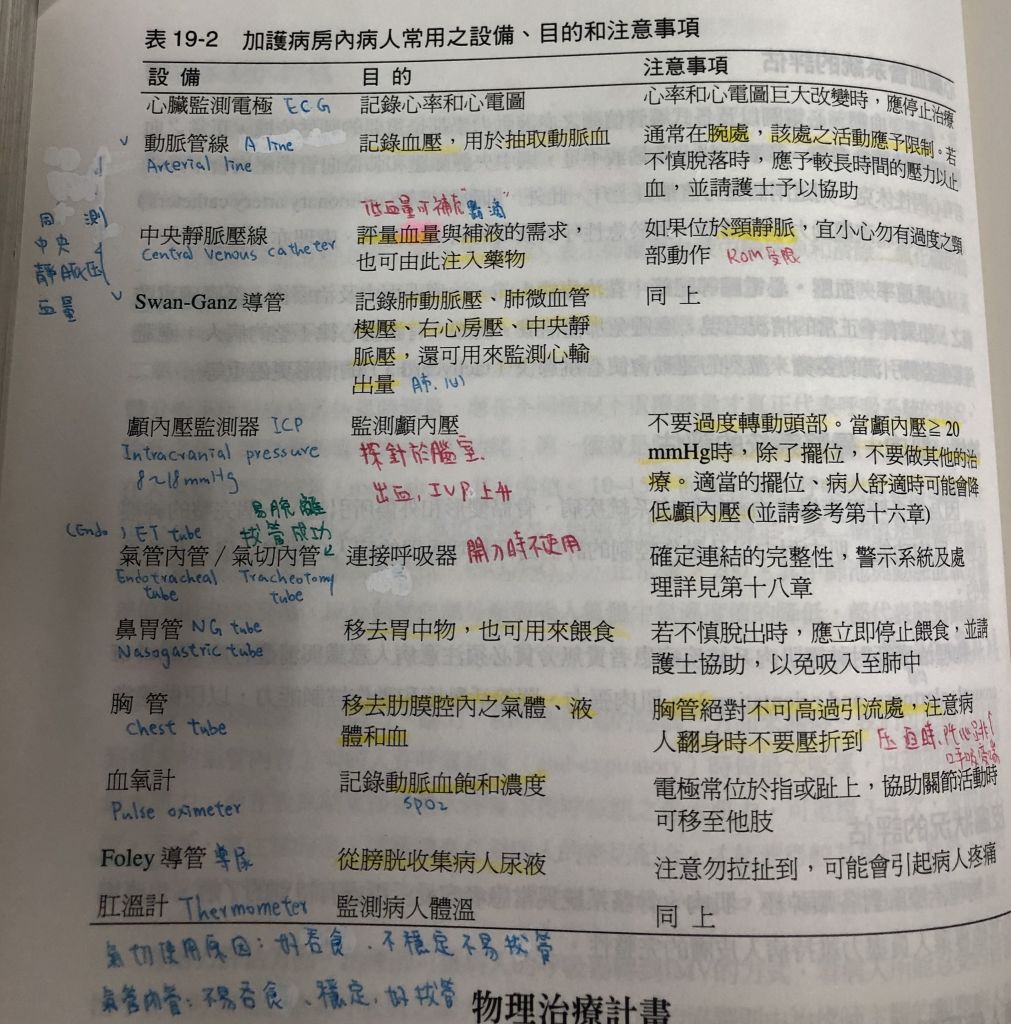 表 19-2 加護病房內病人常用之設備、目的和注意事項
設備 目的 注意事項
心臟監測電極 ECG 記錄心率和心電圖 心率和心電圖巨大改變時，應停止治療
動脈管線 A line 記錄血壓，用於抽取動脈血 通常在腕處，該處之活動應予限制。若
Arterial line 不慎脫落時，應予較長時間的壓力以止
血，並請護士予以協助
同測
中央
靜脈压
血量
低血量可補充點滴
中央靜脈壓線 評量血量與補液的需求， 如果位於頸靜脈，宜小心勿有過度之頸
Central venous catheter 也可由此注入藥物 部動作 ROM受限
Swan-Ganz 導管 記錄肺動脈壓、肺微血管 同上
楔壓、右心房壓、中央靜
脈壓，還可用來監測心輸
出量 肺.心
顱內壓監測器 ICP 監測顱內壓 不要過度轉動頭部。當顱內壓≧20
Intracranial pressure 探針於腦室. mmHg時，除了擺位，不要做其他的治
8~18mmHg 出血,IVP上升 療。適當的擺位、病人舒適時可能會降
低顱內壓（並請參考第十六章）
易脫離
(Endo) ET tube 拔管成功
氣管內管／氣切內管 連接呼吸器 開刀時不使用 確定連結的完整性，警示系統及處
Endotracheal tube Tracheotomy tube 理詳見第十八章
鼻胃管 NG tube 移去胃中物，也可用來餵食 若不慎脫出時，應立即停止餵食，並請
Nasogastric tube 護士協助，以免吸入至肺中
胸管 移去肋膜腔內之氣體、液 胸管絕對不可高過引流處，注意病
Chest tube 體和血 人翻身時不要壓折到
血氧計 記錄動脈血飽和濃度 電極常位於指或趾上，協助關節活動時
Pulse oximeter SpO2 可移至他肢
Foley 導管 導尿 從膀胱收集病人尿液 注意勿拉扯到，可能會引起病人疼痛
肛溫計 Thermometer 監測病人體溫 同上
氣切使用原因：好吞食、不穩定不易拔管
氣管內管：不易吞食、穩定、好拔管
物理治療計畫